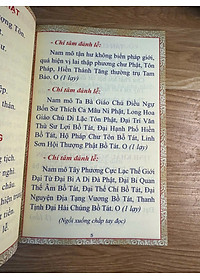 - Chí tâm đảnh lễ:
Nam mô tận hư không biến pháp giới,
quá hiện vị lai thập phương chư Phật, Tôn
Pháp, Hiền Thánh Tăng thường trụ Tam
Bảo. O (1 lạy)
- Chí tâm đảnh lễ:
Nam mô Ta Bà Giáo Chủ Điều Ngự
Bổn Sư Thích Ca Mâu Ni Phật, Long Hoa
Giáo Chủ Di Lặc Tôn Phật, Đại Trí Văn
Thù Sư Lợi Bồ Tát, Đại Hạnh Phổ Hiền
Bồ Tát, Hộ Pháp Chư Tôn Bồ Tát, Linh
Sơn Hội Thượng Phật Bồ Tát. O (1 lạy)
- Chí tâm đảnh lễ:
Nam mô Tây Phương Cực Lạc Thế Giới
Đại Từ Đại Bi A Di Đà Phật, Đại Bi Quan
Thế Âm Bồ Tát, Đại Thế Chí Bồ Tát, Đại
Nguyện Địa Tạng Vương Bồ Tát, Thanh
Tịnh Đại Hải Chúng Bồ Tát. O (1 lạy)
(Ngồi xuống chắp tay đọc)
9